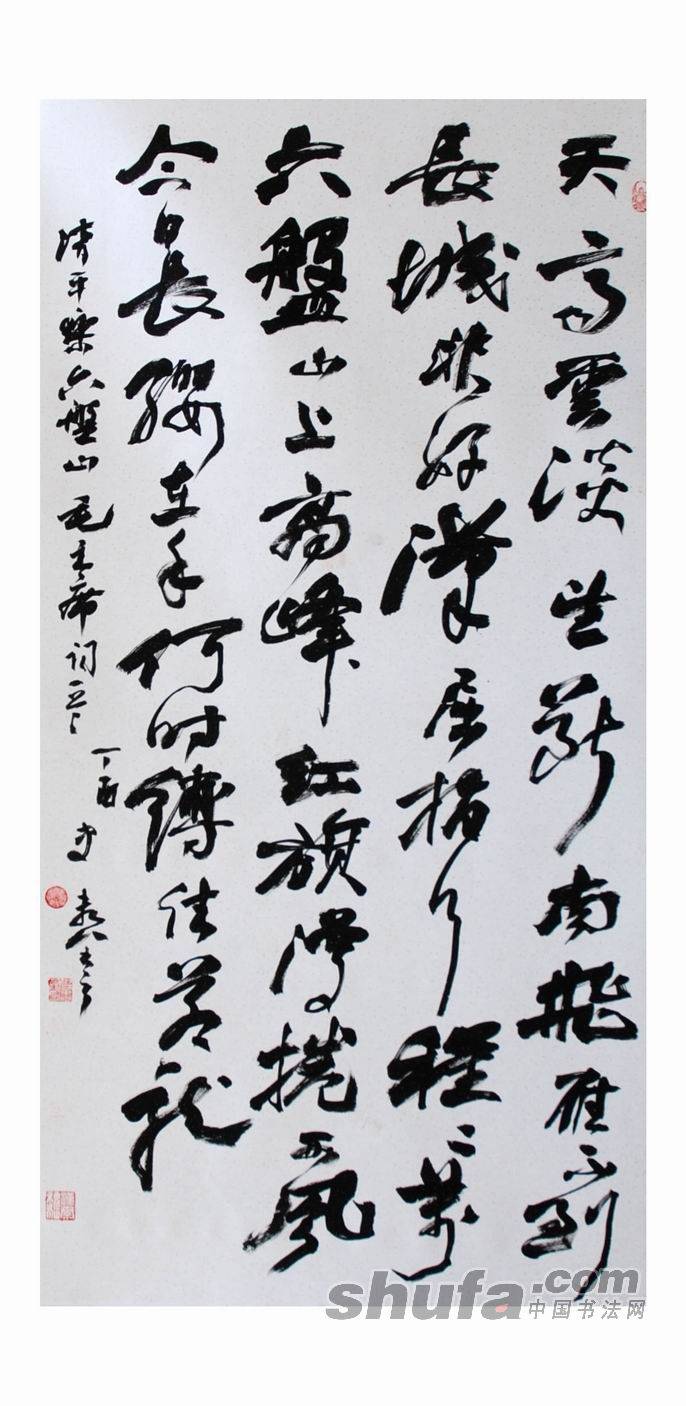 天高雲淡望斷南飛雁不到
長城非好漢屈指行程二萬
六盤山上高峰紅旗漫捲西風
今日長纓在手何时縛住蒼龍
清平樂六盤山毛主席词
丁酉
shufa.com
中国书法网